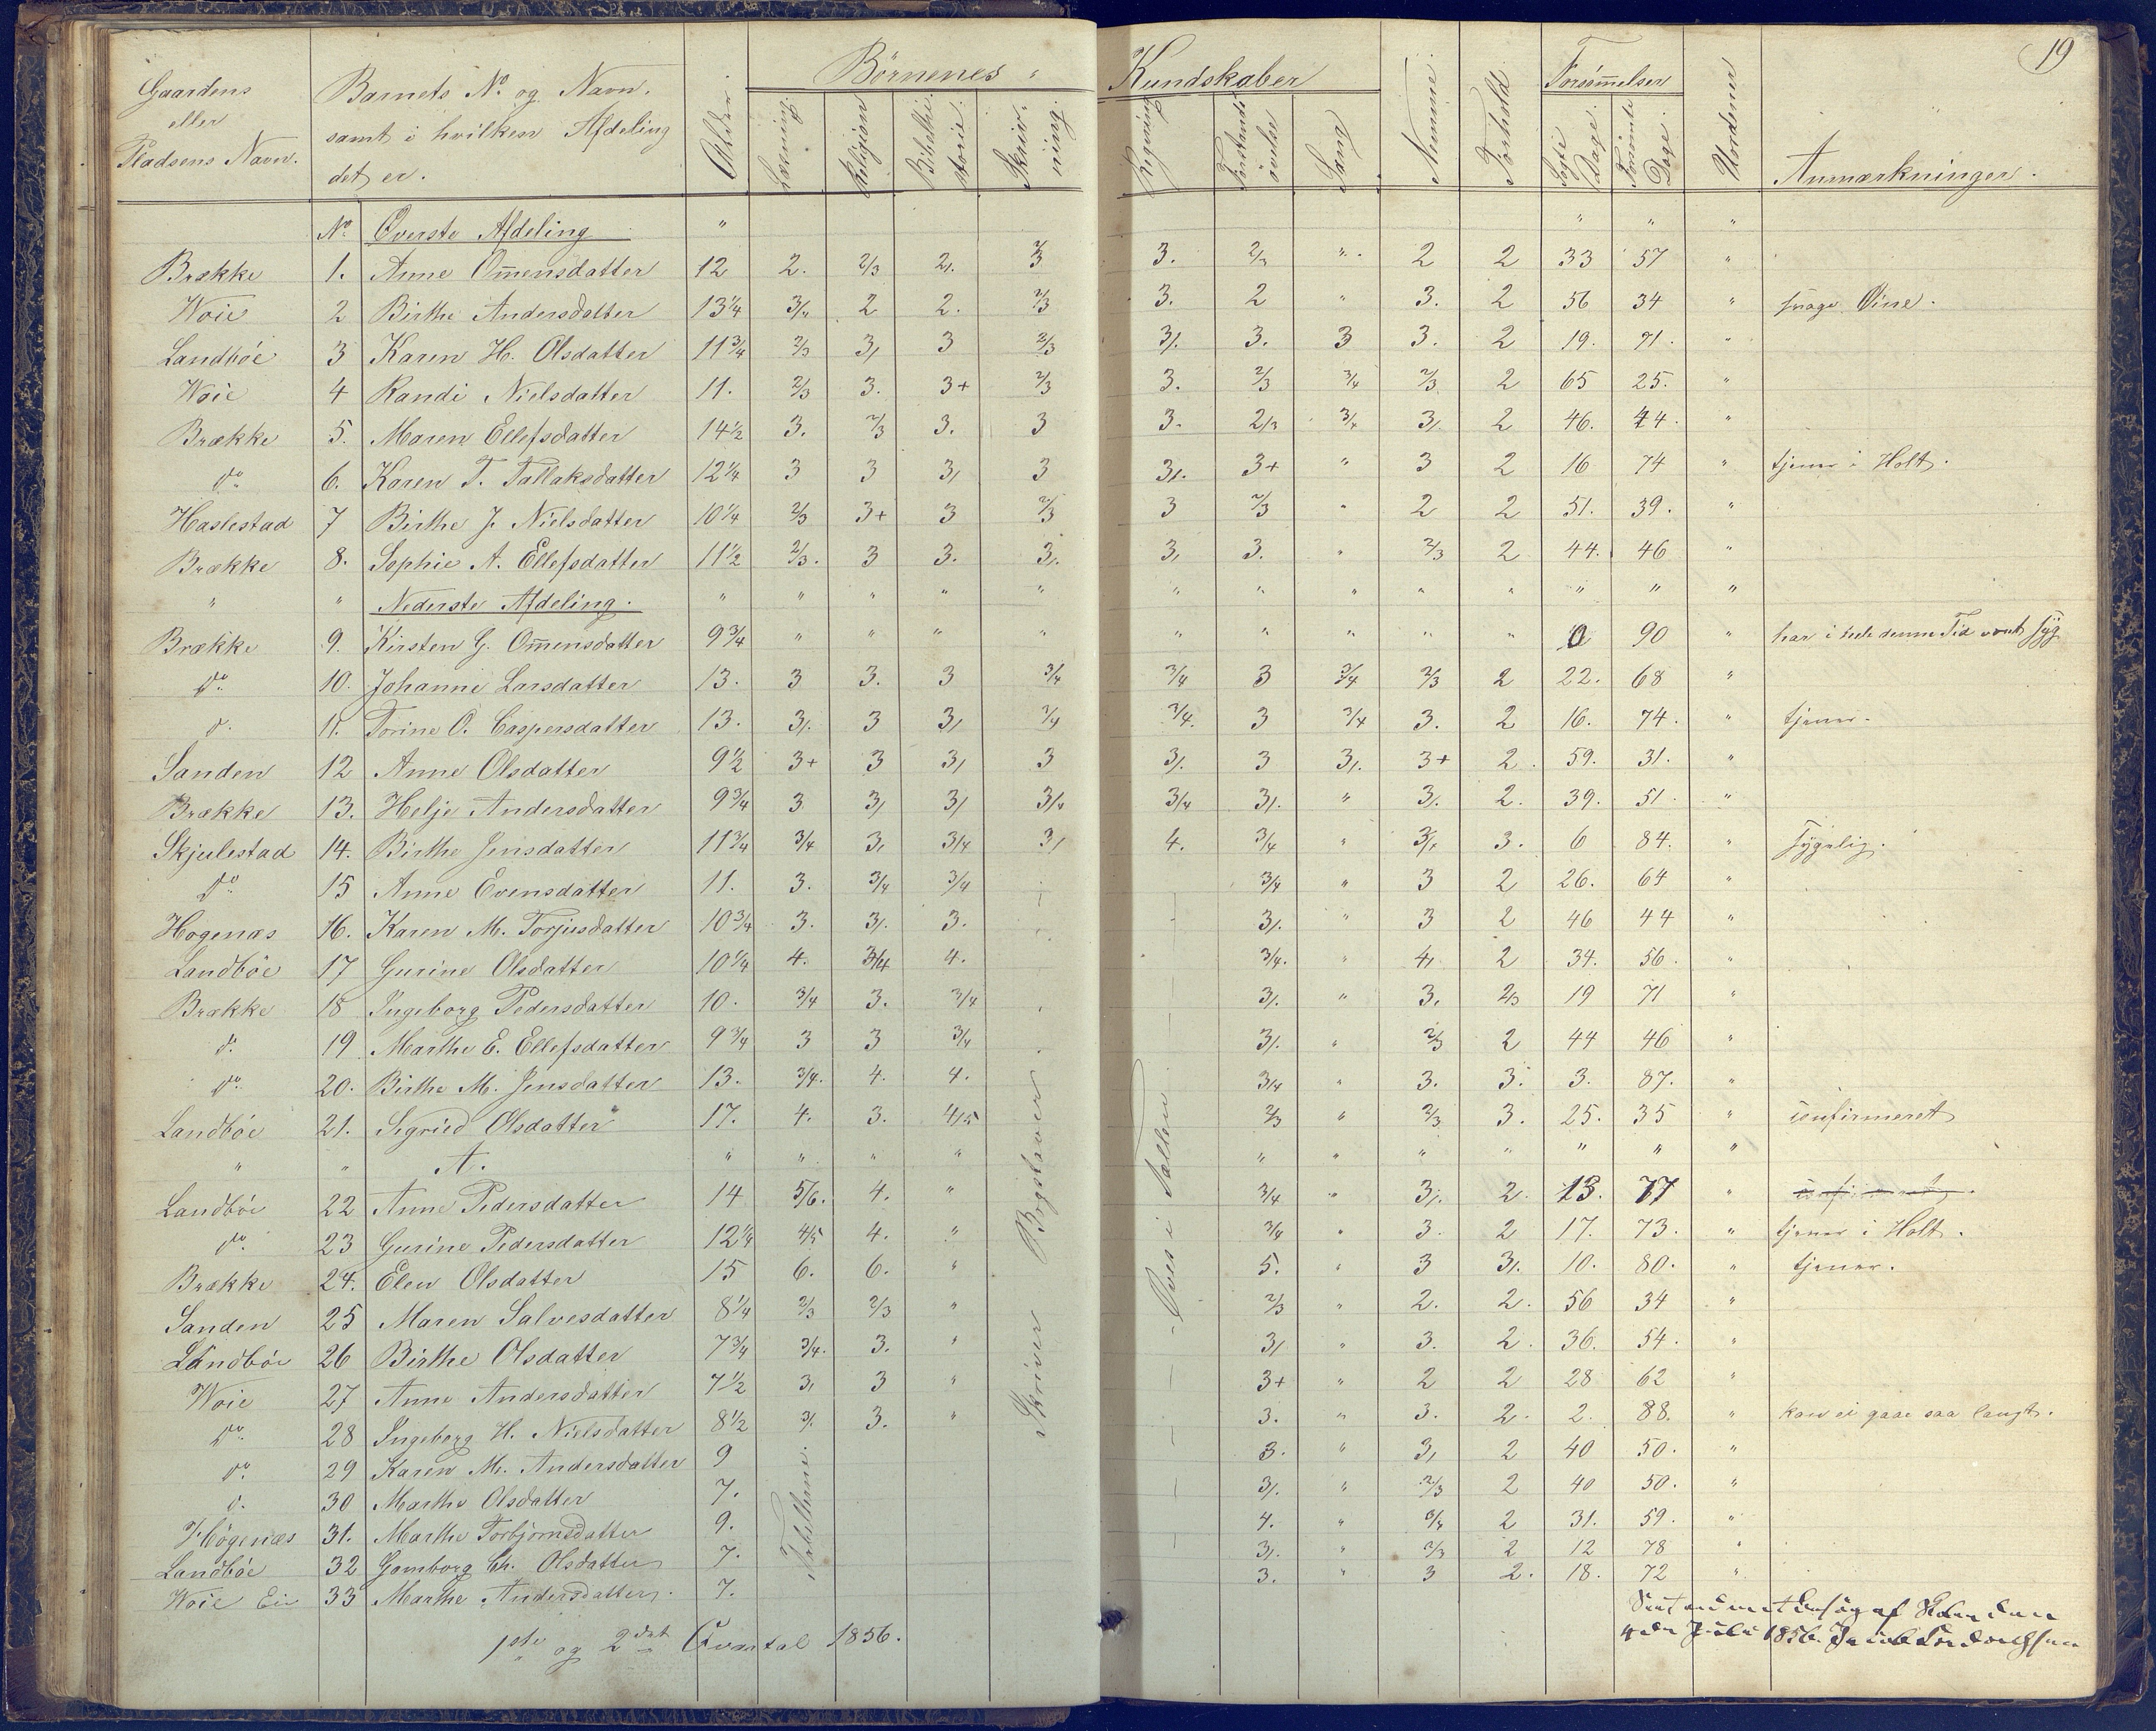 19
Gaardens eller Pladsens Navn. | Barnets No. og Navn. samt i hvilken Afdeling det er. | Alder. | Börnenes Kundskaber: Læsning. | Religion | Bibelhistorie. | Skrivning. | Regning | Forstandsövelser | Sang | Nemme. | Forhold | Forsömmelser: Sögte Dage. | Forsömte Dage. | Uordener | Anmærkninger.
No. Överste Afdeling " " " "
Brække 1. Anne Om̄ensdatter 12 2. 2/3 2/. 2/3 3. 2/3 " 2 2 33 57 "
Woie 2 Birthe Andersdatter 13 1/4 3/4 2 2. 2/3 3. 2 " 3. 2 56 34 " svage Öine.
Landböe 3 Karen H. Olsdatter 11 3/4 2/3 3/ 3 2/3 3/. 3. 3 3. 2 19. 71. "
Woie 4 Randi Nielsdatter 11. 2/3 3. 3+ 2/3 3. 2/3 3/4 2/3 2 65 25. "
Brække 5. Maren Ellefsdatter 14 1/2 3. 2/3 3. 3 3. 2/3 3/4 3/. 2 46. 44. "
do. 6. Karen T. Tallaksdatter 12 1/4 3 3 3/ 3 3/. 3+ " 3 2 16 74 " tjener i Holt.
Haslestad 7 Birthe J. Nielsdatter 10 1/4 2/3 3+ 3 2/3 3 2/3 " 2 2 51. 39. "
Brække 8. Sophie A. Ellefsdatter 11 1/2 2/3. 3 3. 3/. 3/ 3. " 2/3 2 44. 46 "
" " Nederste Afdeling. " " " " " " " " " " " " "
Brække 9. Kirsten G. Om̄ensdatter 9 3/4 " " " " " " " " " 0 90 " har i hele denne Tid været syg
do. 10. Johanne Larsdatter 13. 3 3. 3 3/4 3/4 3 3/4 2/3 2 22. 68 "
d. 11. Torine O. Caspersdatter 13. 3/. 3 3/ 3/4 3/4. 3 3/4 3. 2 16. 74. " tjener.
Sanden 12 Anne Olsdatter 9 1/2 3+ 3 3/ 3 3/. 3 3/. 3+ 2. 59. 31. "
Brække 13. Helje Andersdatter 9 3/4 3 3/ 3/ 3/4 3/4 3/. " 3/. 2. 39. 51. "
Skjulestad 14. Birthe Jensdatter 11 3/4 3/4 3/ 3/4 3/ 4. 3/4 " 3/4 3. 6 84. " Sygelig.
do. 15 Anne Evensdatter 11. 3. 3/4 3/4 3/4 " 3 2 26. 64 "
Hogenæs 16. Karen M. Torjusdatter 10 3/4 3. 3/. 3. 3/. " 3 2 46 44 "
Landböe 17 Gurine Olsdatter 10 1/4 4. 3/4 4. 3/4. " 4/ 2 34. 56. "
Brække 18 Ingeborg Pedersdatter 10. 3/4 3. 3/4 3/. " 3. 2/3 19 71 "
d. 19 Marthe E. Ellefsdatter 9 3/4 3 3 3/4 3/. " 2/3 2 44 46 "
do. 20. Birthe M. Jensdatter 13. 3/4. 4. 4. 3/4 " 3. 3. 3. 87. "
Landböe 21. Sigried Olsdatter 17. 4. 3. 4/5 2/3 " 2/3 3. 25. 35 " confirmeret
" " A. " " " " " " " " " " "
Landböe 22 Anne Pedersdatter 14 5/6. 4. " 3/4 " 3/. 2. 13. 77 "
do. 23 Gurine Pedersdatter 12 1/4 4/5 4. " 3/4 " 3. 2 17. 73. " tjener i Holt.
Brække 24. Elen Olsdatter 15 6. 6. " 5. " 3 3/. 10. 80. " tjener.
Sanden 25 Maren Salvesdatter 8 1/4 2/3 2/3 " 2/3 " 2. 2. 56 34 "
Landböe 26 Birthe Olsdatter 7 3/4 3/4. 3. " 3/ " 3. 2. 36. 54. "
Woie 27 Anne Andersdatter 7 1/2 3/ 3 " 3+ " 2 2 28 62 "
do. 28 Ingeborg H. Nielsdatter 8 1/2 3/. 3. " 3. " 3. 2. 2. 88. " kan ei gaae saa langt.
do. 29 Karen M. Andersdatter 9 3. " 3/ 2 40 50. "
d. 30 Marthe Olsdatter 7. 3/. " 2/3 2 40 50. "
Högenæs 31. Marthe Torbjørnsdatter 9. 4. " 3/4 2 31. 59. "
Landböe 32 Gomborg Ch. Olsdatter 7. 3/. " 2/3 2 12 78 "
Woie Ei 33 Marthe Andersdatter. 7. 3. " 3 2. 18. 72 "
Skriver Bogstaver
Öves i Tallen
Tabellerne.
1ste og 2det Qvartal 1856.
Seet ved mit Besög af Skolen den
4de Juli 1856.